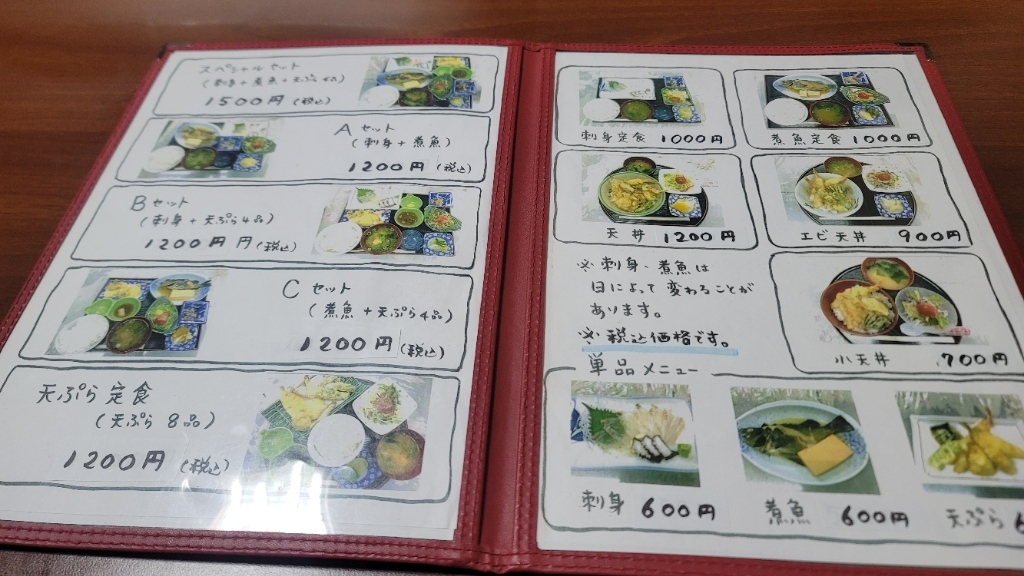 スペシャルセット
(刺身+煮魚+天ぷら4品)
1500円(税込)
Aセット
(刺身+煮魚)
1200円(税込)
Bセット
(刺身+天ぷら4品)
1200円円(税込)
Cセット
(煮魚+天ぷら4品)
1200円(税込)
天ぷら定食
(天ぷら 8品)
1200円(税込)
刺身定食 1000円
煮魚定食 1000円
天丼 1200円
エビ天丼 900円
※刺身・煮魚は
日によって変わることが
あります。
※税込価格です。
小天丼 700円
単品メニュー
刺身 600円
煮魚 600円
天ぷら